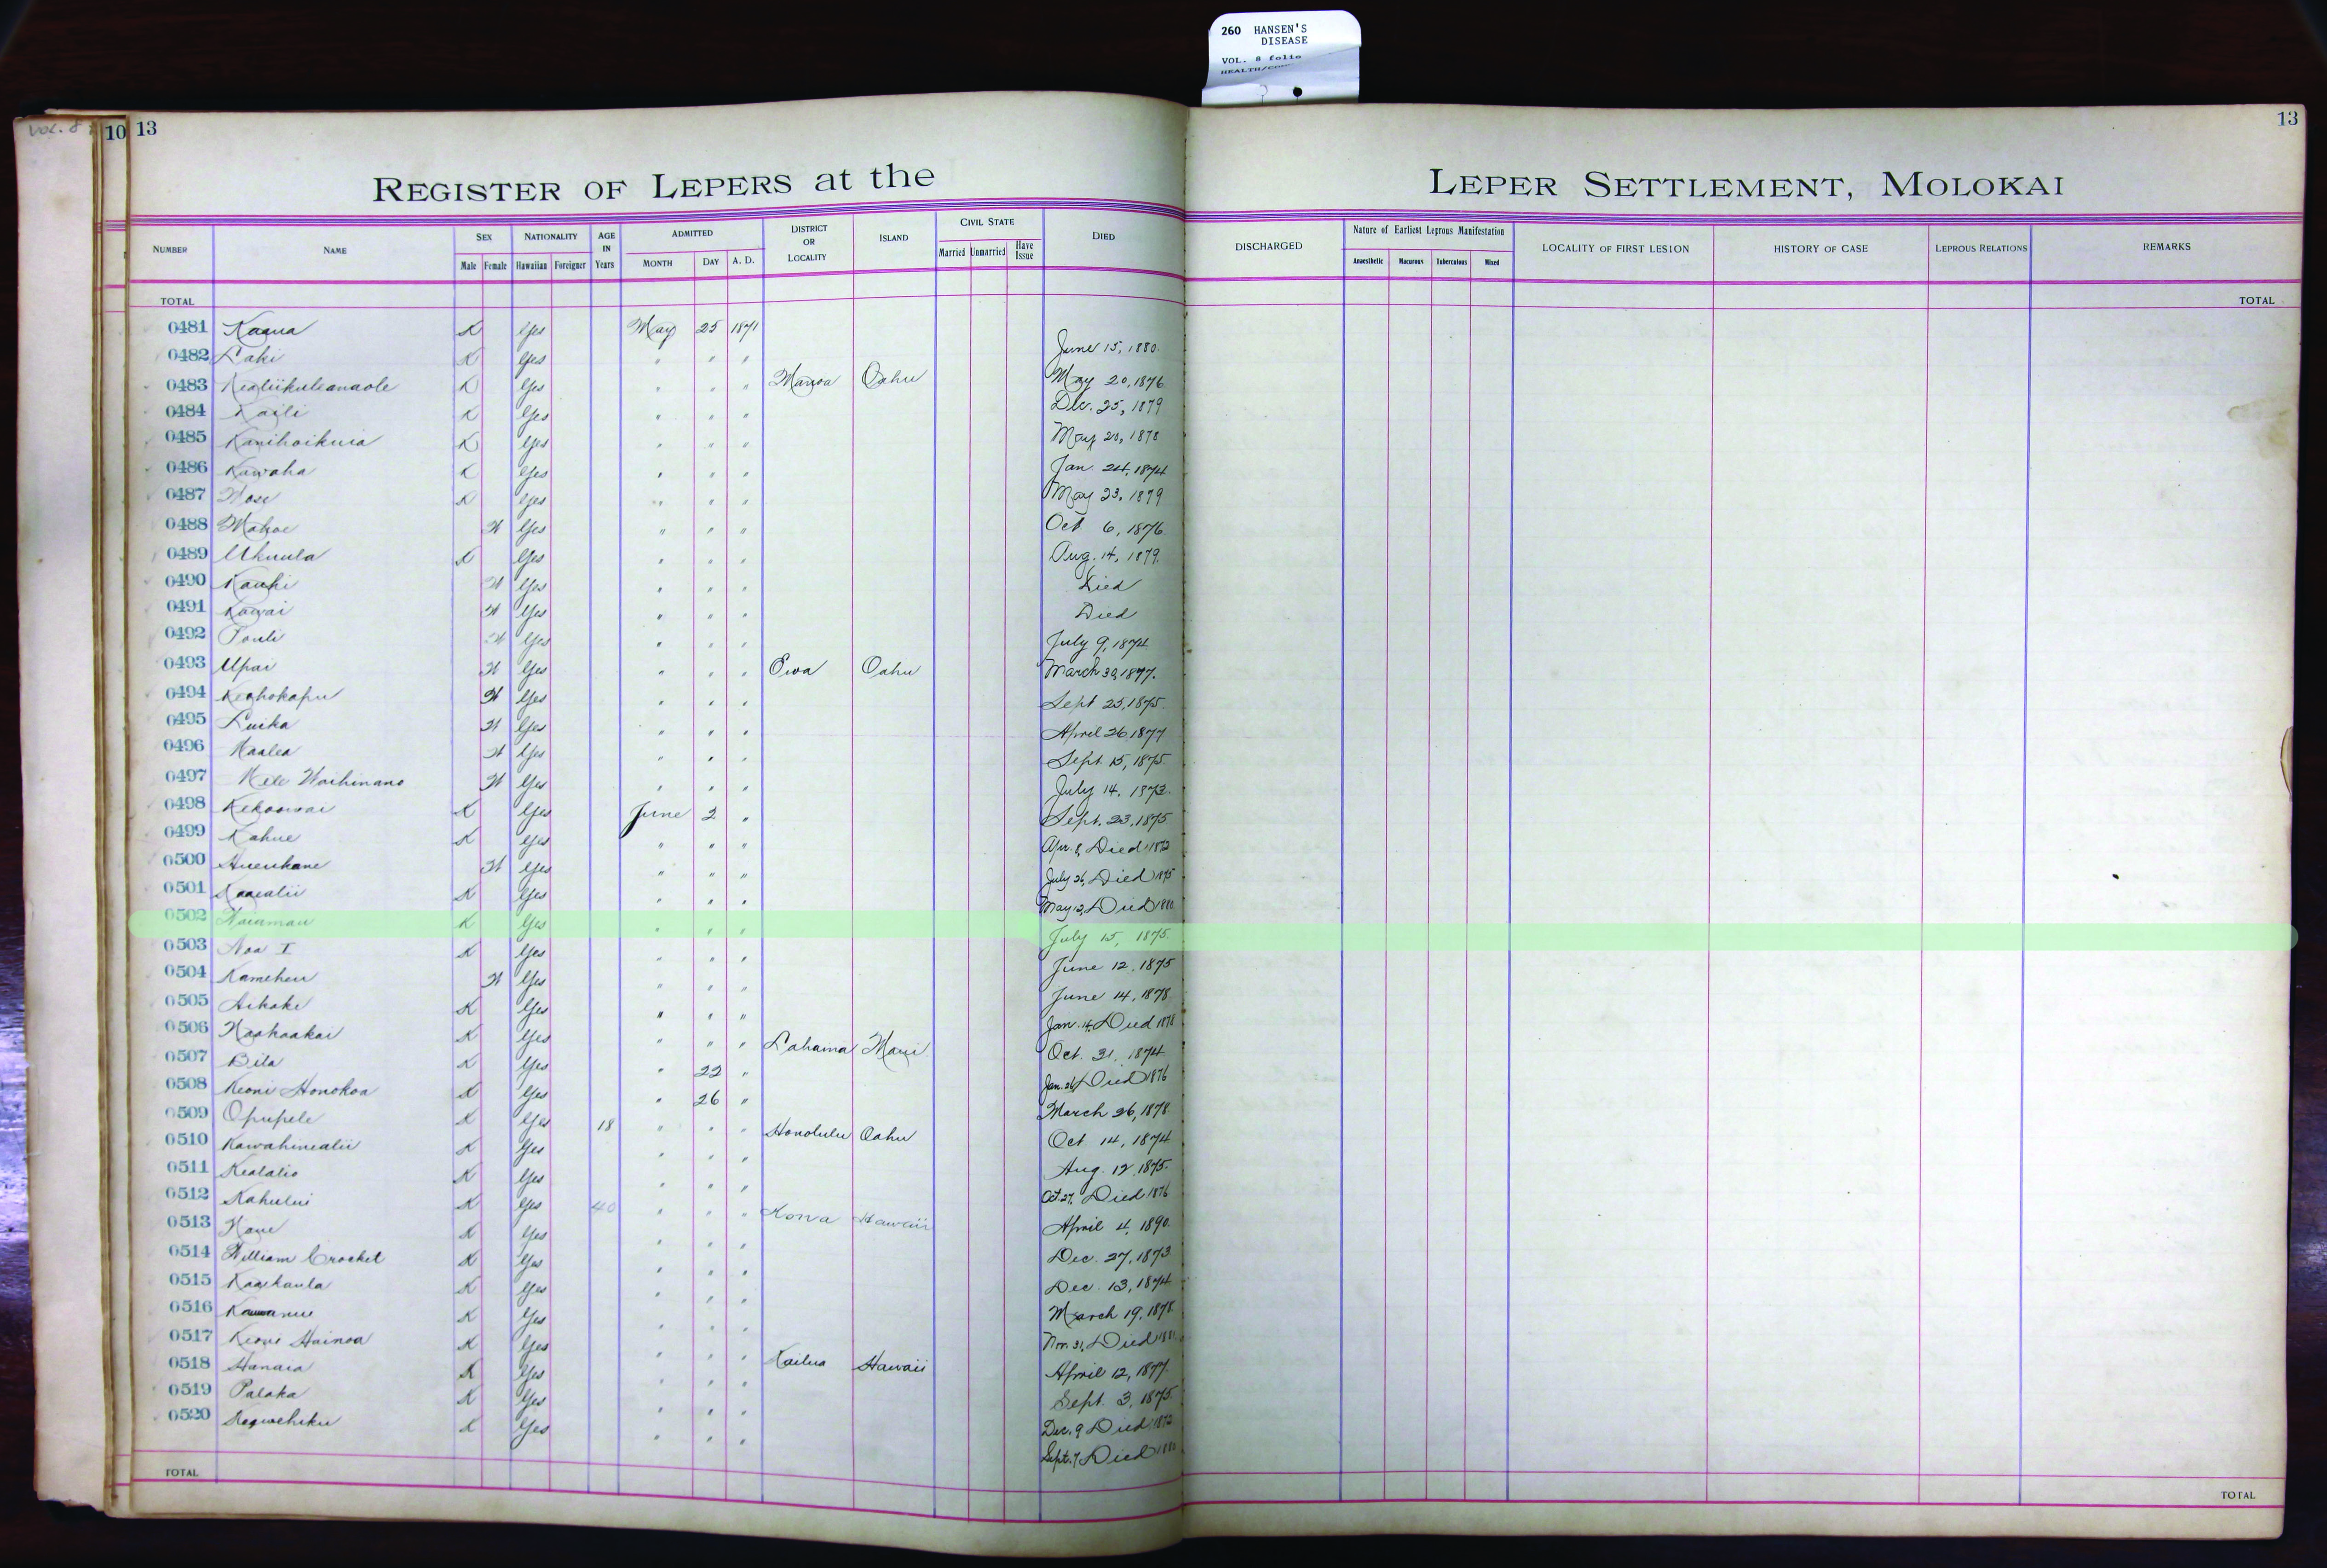 260 HANSEN'S
DISEASE
VOL. 8 folio
VOL. 8
10 13
13
REGISTER OF LEPERS at the LEPER SETTLEMENT, MOLOKAI
NUMBER NAME SEX Male Female NATIONALITY Hawaiian Foreigner AGE IN Years ADMITTED MONTH DAY A. D. DISTRICT OR LOCALITY ISLAND CIVIL STATE Married Unmarried Have Issue DIED DISCHARGED Nature of Earliest Leprous Manifestation Anaesthetic Macurous Tuberculous Mixed LOCALITY OF FIRST LESION HISTORY OF CASE LEPROUS RELATIONS REMARKS
TOTAL TOTAL
0481 Kaaua K Yes May 25 1871
0482 Laki K Yes " " " June 15, 1880.
0483 Kealiikuleanaole K Yes " " " Manoa Oahu May 20, 1876
0484 Kaili K Yes " " " Dec. 25, 1879
0485 Kanihoikuia K Yes " " " May 20, 1878
0486 Kawaha K Yes " " " Jan. 24, 1874
0487 Hose K Yes " " " May 23, 1879
0488 Mahoe W Yes " " " Oct 6, 1876.
0489 Ukuula K Yes " " " Aug. 14, 1879.
0490 Kauhi W Yes " " " Died
0491 Kawai W Yes " " " Died
0492 Pouli W Yes " " " July 9, 1874
0493 Upai W Yes " " " Ewa Oahu March 30, 1877.
0494 Keahokapu W Yes " " " Sept 25, 1875.
0495 Luika W Yes " " " April 26 1877
0496 Maalea W Yes " " " Sept. 15, 1875.
0497 Mele Waihinano W Yes " " " July 14, 1873.
0498 Kekoowai K Yes June 2 " Sept. 23, 1875
0499 Kahue K Yes " " " Apr. 8, Died 1872
0500 Hueukane W Yes " " " July 26, Died 1875
0501 Kaaealii K Yes " " " May 12, Died 1880
0502 K Yes " " " July 15, 1875.
0503 Noa I K Yes " " " June 12, 1875
0504 Kameheu W Yes " " " June 14, 1878
0505 Aikake K Yes " " " Jan. 14, Died 1878
0506 Kaahaakai K Yes " " " Lahaina Maui Oct. 31, 1874
0507 Bila K Yes " 22 " Jan. 26, Died 1876
0508 Keoni Honokoa K Yes " 26 " March 26, 1878
0509 Opupele K Yes 18 " " " Honolulu Oahu Oct 14, 1874
0510 Kawahinealii K Yes " " " Aug. 12, 1875.
0511 Kealalio K Yes " " " Oct. 27, Died 1876
0512 Kahului K Yes 40 " " " Kona Hawaii April 4, 1890.
0513 Kaue K Yes " " " Dec. 27, 1873
0514 William Crocket K Yes " " " Dec. 13, 1874
0515 Kaaikaula K Yes " " " March 19, 1878
0516 K Yes " " " Nov. 31, Died
0517 Keoni Hainoa K Yes " " " Kailua Hawaii April 12, 1877.
0518 Hanaia K Yes " " " Sept. 3, 1875.
0519 Palaka K Yes " " " Dec. 9 Died 1872
0520 K Yes " " " Sept. 7, Died
TOTAL TOTAL